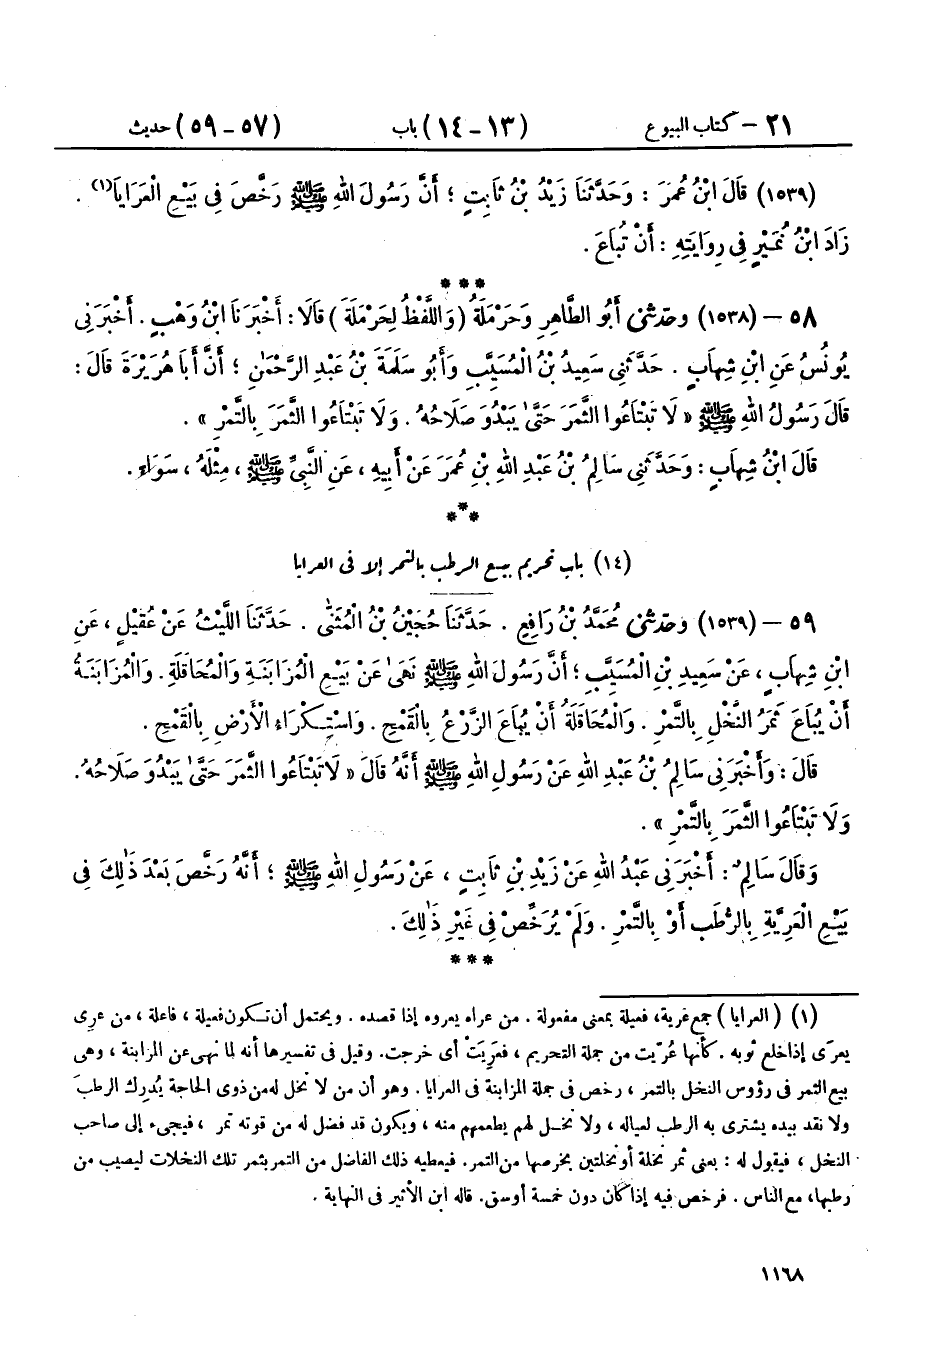 ٢١ – كتاب البيوع (١٣ – ١٤) باب (٥٧ – ٥٩) حديث
(١٥٣٩) قَالَ ابْنُ عُمَرَ : وَحَدَّثَنَا زَيْدُ بْنُ ثَابِتٍ ؛ أَنَّ رَسُولَ اللهِ ﷺ رَخَّصَ فِي بَيْعِ الْعَرَايَا(١) .
زَادَ ابْنُ نُمَيْرٍ فِي رِوَايَتِهِ : أَنْ تُبَاعَ .
***
٥٨ – (١٥٣٨) وحَدَّثَنِي أَبُو الطَّاهِرِ وَحَرْمَلَةُ ( وَاللَّفْظُ لِحَرْمَلَةَ ) قَالَا : أَخْبَرَنَا ابْنُ وَهْبٍ . أَخْبَرَنِي
يُونُسُ عَنِ ابْنِ شِهَابٍ . حَدَّثَنِي سَعِيدُ بْنُ الْمُسَيَّبِ وَأَبُو سَلَمَةَ بْنُ عَبْدِ الرَّحْمَٰنِ ؛ أَنَّ أَبَا هُرَيْرَةَ قَالَ :
قَالَ رَسُولُ اللهِ ﷺ « لَا تَبْتَاعُوا الثَّمَرَ حَتَّىٰ يَبْدُوَ صَلَاحُهُ . وَلَا تَبْتَاعُوا الثَّمَرَ بِالتَّمْرِ » .
قَالَ ابْنُ شِهَابٍ : وَحَدَّثَنِي سَالِمُ بْنُ عَبْدِ اللهِ بْنِ عُمَرَ عَنْ أَبِيهِ ، عَنِ النَّبِيِّ ﷺ ، مِثْلَهُ ، سَوَاءً .
***
(١٤) باب تحريم بيع الرطب بالتمر إلا فى العرايا
٥٩ – (١٥٣٩) وحَدَّثَنِي مُحَمَّدُ بْنُ رَافِعٍ . حَدَّثَنَا حُجَيْنُ بْنُ الْمُثَنَّىٰ . حَدَّثَنَا اللَّيْثُ عَنْ عُقَيْلٍ ، عَنِ
ابْنِ شِهَابٍ ، عَنْ سَعِيدِ بْنِ الْمُسَيَّبِ ؛ أَنَّ رَسُولَ اللهِ ﷺ نَهَىٰ عَنْ بَيْعِ الْمُزَابَنَةِ وَالْمُحَاقَلَةِ . وَالْمُزَابَنَةُ
أَنْ يُبَاعَ ثَمَرُ النَّخْلِ بِالتَّمْرِ . وَالْمُحَاقَلَةُ أَنْ يُبَاعَ الزَّرْعُ بِالْقَمْحِ . وَاسْتِكْرَاءُ الْأَرْضِ بِالْقَمْحِ .
قَالَ : وَأَخْبَرَنِي سَالِمُ بْنُ عَبْدِ اللهِ عَنْ رَسُولِ اللهِ ﷺ أَنَّهُ قَالَ « لَا تَبْتَاعُوا الثَّمَرَ حَتَّىٰ يَبْدُوَ صَلَاحُهُ .
وَلَا تَبْتَاعُوا الثَّمَرَ بِالتَّمْرِ » .
وَقَالَ سَالِمٌ : أَخْبَرَنِي عَبْدُ اللهِ عَنْ زَيْدِ بْنِ ثَابِتٍ ، عَنْ رَسُولِ اللهِ ﷺ ؛ أَنَّهُ رَخَّصَ بَعْدَ ذَٰلِكَ فِي
بَيْعِ الْعَرِيَّةِ بِالرُّطَبِ أَوْ بِالتَّمْرِ . وَلَمْ يُرَخِّصْ فِي غَيْرِ ذَٰلِكَ .
***
(١) ( العرايا ) جمع عرية، فعيلة بمعنى مفعولة . من عراه يعروه إذا قصده . ويحتمل أن تكون فعيلة ، فاعلة ، من عرِى
يعرَى إذا خلع ثوبه . كأنها عُرّيت من جملة التحريم ، فعَرِيَتْ أى خرجت . وقيل فى تفسيرها أنه لما نهى عن المزابنة ، وهى
بيع الثمر فى رؤوس النخل بالتمر ، رخص فى جملة المزابنة فى العرايا . وهو أن من لا نخل له من ذوى الحاجة يُدرك الرطبَ
ولا نقد بيده يشترى به الرطب لعياله ، ولا نخل لهم يطعمهم منه ، ويكون قد فضل له من قوته تمر ، فيجىء إلى صاحب
النخل ، فيقول له : بعنى ثمر نخلة أو نخلتين بخرصها من التمر . فيعطيه ذلك الفاضل من التمر بثمر تلك النخلات ليصيب من
رطبها، مع الناس . فرخص فيه إذا كان دون خمسة أوسق. قاله ابن الأثير فى النهاية .
١١٦٨